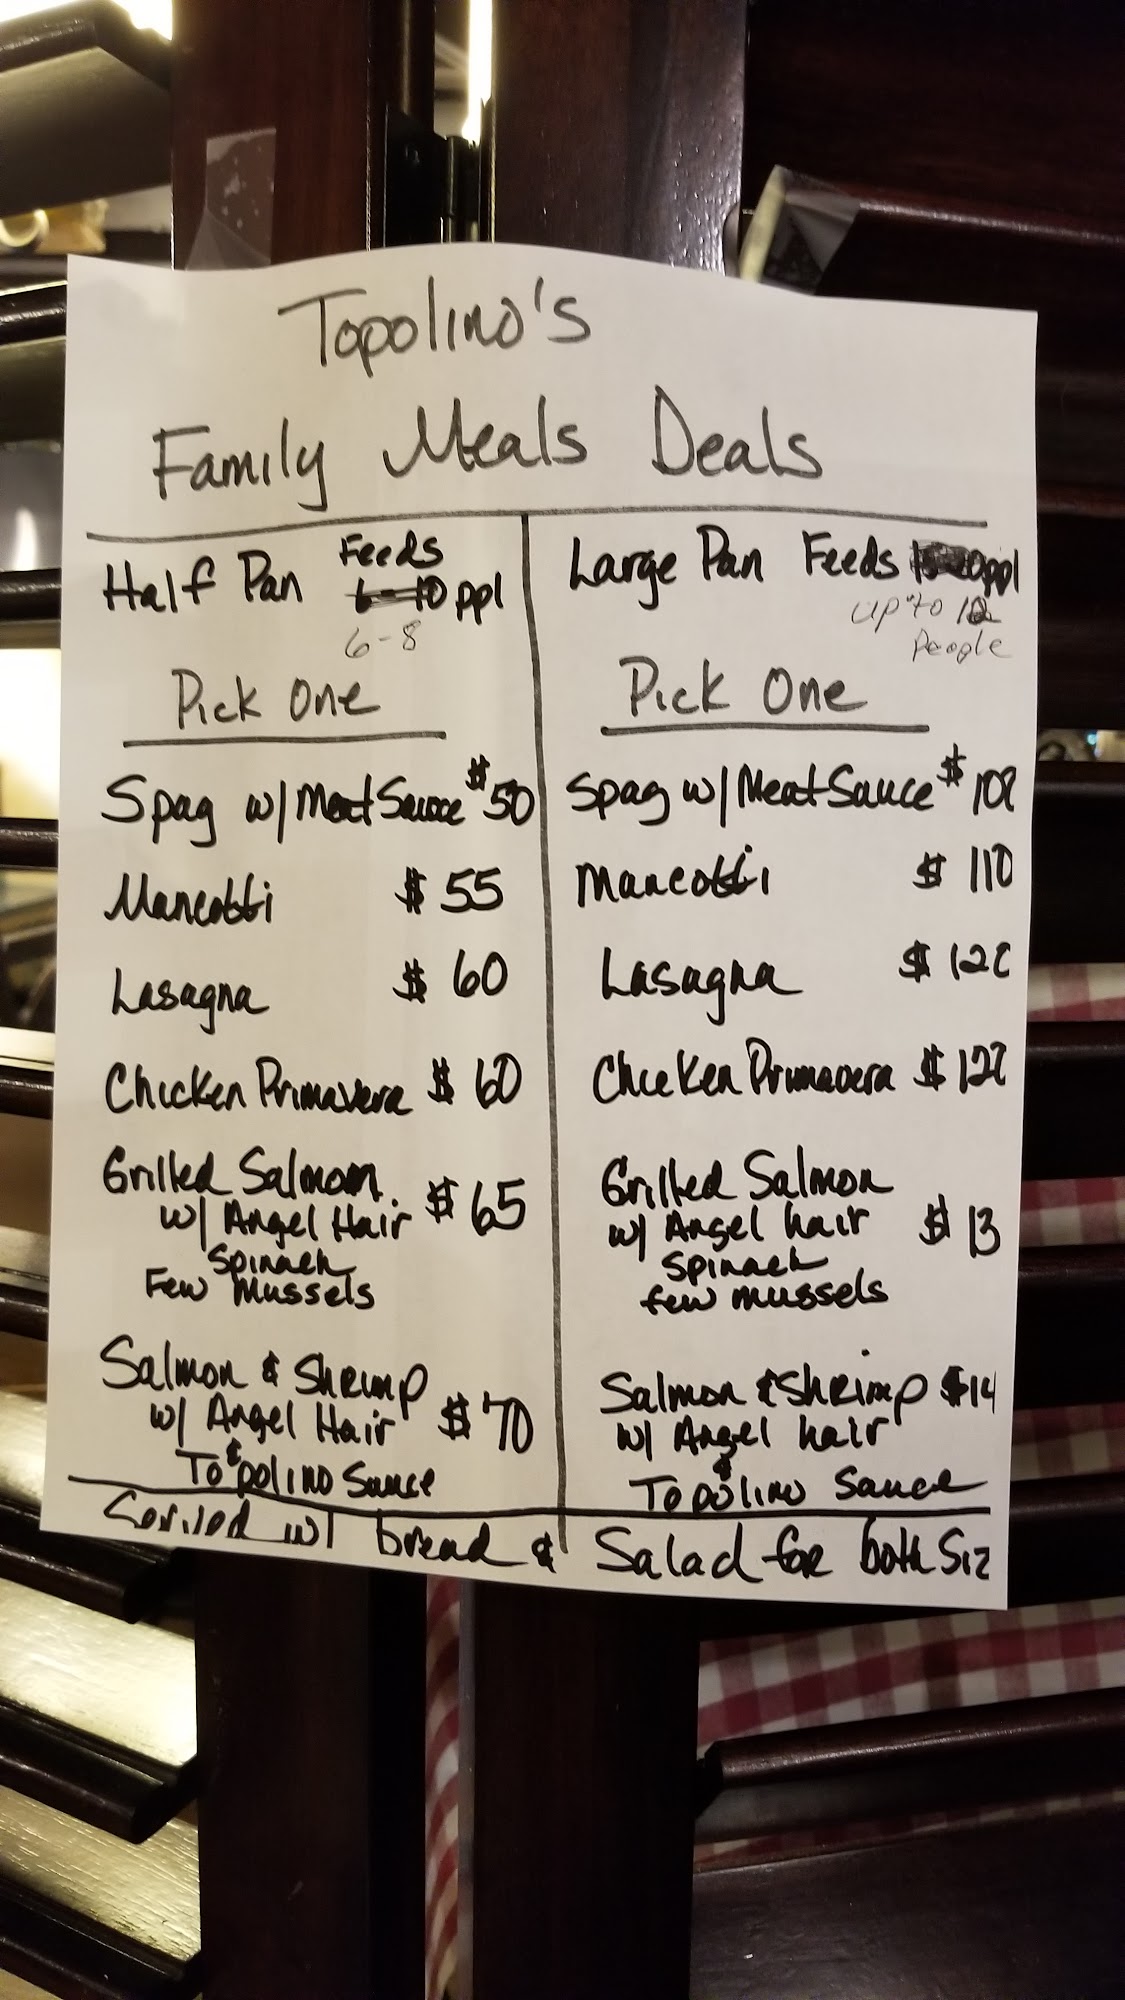 Topolino's
Family Meals Deals
Half Pan Feeds
6-10 ppl
6-8
Pick One
Spag w/ Meat Sauce $50
Mancotti $ 55
Lasagna $ 60
Chicken Primavera $ 60
Grilled Salmon $ 65
w/ Angel Hair
Spinach
Few Mussels
Salmon & Shrimp $ 70
w/ Angel Hair
&
Topolino Sauce
Large Pan Feeds ppl
up to 12
People
Pick One
Spag w/ Meat Sauce $
Mancotti $ 110
Lasagna $
Chicken Primavera $
Grilled Salmon
w/ Angel hair $ 13
Spinach
few mussels
Salmon & Shrimp $14
w/ Angel hair
&
Topolino Sauce
Served w/ bread & Salad for both Siz